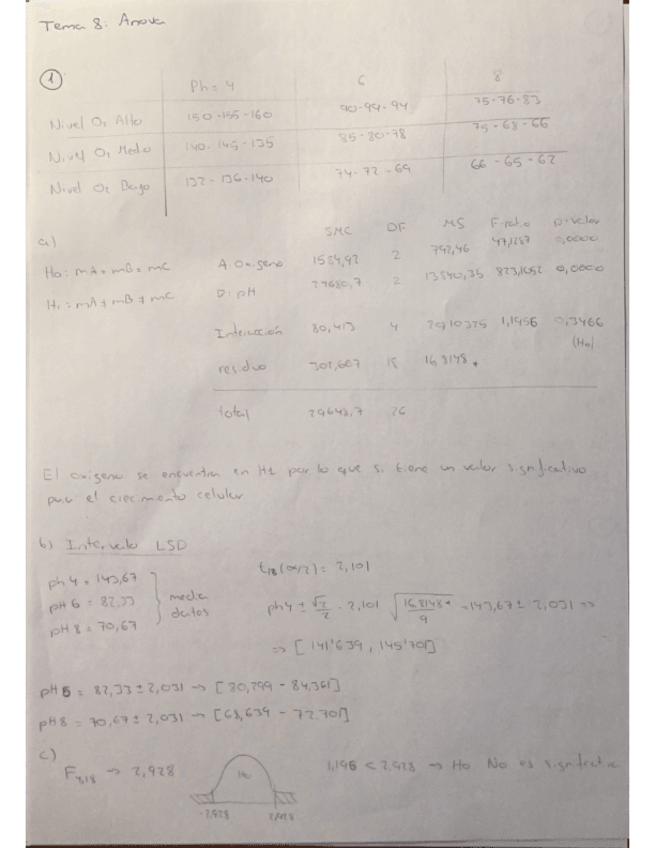 Tema 8: Anova
1
Ph = 4 6 8
Nivel O₂ Alto 150 - 155 - 160 90 - 94 - 94 75 - 76 - 83
Nivel O₂ Medio 140 - 145 - 135 85 - 80 - 78 75 - 68 - 66
Nivel O₂ Bajo 132 - 136 - 140 74 - 72 - 69 66 - 65 - 62
a)
SMC DF MS F-ratio p-valor
H₀: mA = mB = mC A: Oxigeno 1584,92 2 792,46 47,1287 0,0000
H₁: mA ≠ mB ≠ mC B: pH 27680,7 2 13840,35 823,1052 0,0000
Interacción 80,413 4 1,1956 0,3466
(H₀)
residuo 302,667 18 16,8148
total 29648,7 26
El oxigeno se encuentra en H1 por lo que si tiene un valor significativo
para el crecimiento celular
b) Intervalo LSD
t₁₈(α/2) = 2,101
ph 4 = 143,67
pH 6 = 82,33
pH 8 = 70,67
media datos
ph4 ± √2/2 · 2,101 √16,8148/9 = 143,67 ± 2,031 =>
=> [141'639, 145'701]
pH 6 = 82,33 ± 2,031 → [80,299 - 84,361]
pH 8 = 70,67 ± 2,031 → [68,639 - 72,701]
c)
F₄,₁₈ → 2,928 H₀ 1,195 < 2,928 → H₀ No es significativo
-2,928 2,928